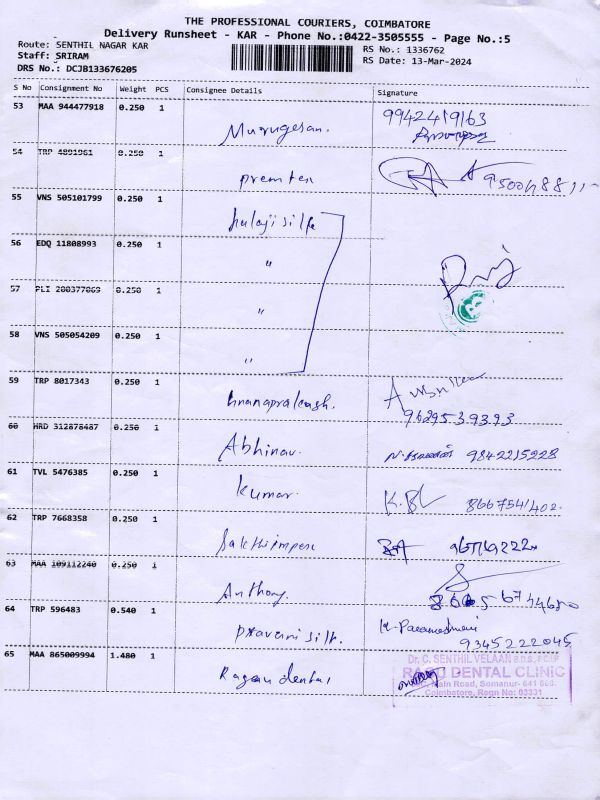 THE PROFESSIONAL COURIERS, COIMBATORE
Delivery Runsheet - KAR - Phone No.:0422-3505555 - Page No.:5
Route: SENTHIL NAGAR KAR RS No.: 1336762
Staff: SRIRAM RS Date: 13-Mar-2024
DRS No.: DCJB133676205
S No Consignment No Weight PCS Consignee Details Signature
53 MAA 944477918 0.250 1
Murugesan. 9942419163
54 TRP 4891961 0.250 1
premtex
55 VNS 505101799 0.250 1
balaji silks
56 EDQ 11808993 0.250 1
"
57 PLI 200377069 0.250 1
"
58 VNS 505054209 0.250 1
"
59 TRP 8017343 0.250 1
Gnanaprakash. 9629539393
60 HRD 312878487 0.250 1
Abhinav. 9842215228
61 TVL 5476385 0.250 1
Kumar. K.BL
62 TRP 7668358 0.250 1
63 MAA 109112240 0.250 1
Anthony.
64 TRP 596483 0.540 1
praveni silk. K. Parameshwari
9345222045
65 MAA 865009994 1.480 1
Ragau dental
Dr. C. SENTHIL VELAAN B.D.S.,
DENTAL CLINIC
Main Road, Somanur-641 668.
Coimbatore, Regn No: 03331